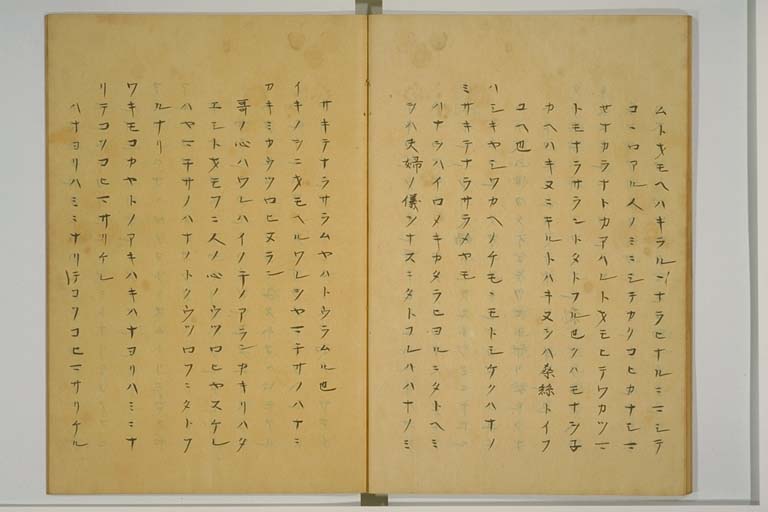 ムトオモヘハキラルヽナラヒナルニマシテ
コヽロアル人ノミニシテカリコヒカナシマ
サナカラナトカアハレトオモヒテワカツマ
トモナラサラントタトフル也クハモナシ子
カヘハキヌニキルトハキヌヲハ桑絲トイフ
ユヘ也
ハシキヤシワカヘノケモヽモトシケクハナノ
ミサキテナラサラメヤモ
ハナヲハイロメキカタラヒヨルニタトヘミ
ヲハ夫婦ノ儀ヲナスニタトフレハハナノミ
サキテナラサラムヤハトウラムル也
イキノヲニオモヘルワレヲヤマチサノハナニ
カキミカウツロヒヌラン
哥ノ心ハワレハイノチノアランカキリハタ
エシトオモフニ人ノ心ノウツロヒヤスケレ
ハヤマチサノハナノトクウツロフニタトフ
ルナリ
ワキモコカヤトノアキハキハナヨリハミニナ
リテコソコヒマサリケレ
ハナヨリハミニナリテコソコヒマサリケル